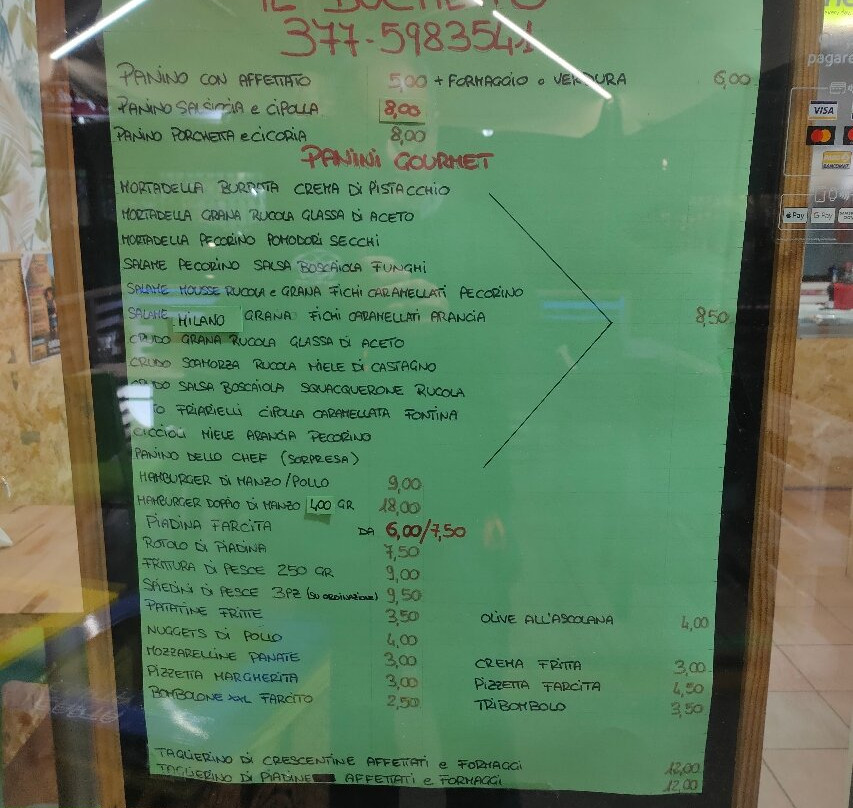 IL BUCHETTO
377-5983541
PANINO CON AFFETTATO 5,00 + FORMAGGIO o VERDURA 6,00
PANINO SALSICCIA e CIPOLLA 8,00
PANINO PORCHETTA e CICORIA 8,00
PANINI GOURMET
MORTADELLA BURRATA CREMA DI PISTACCHIO
MORTADELLA GRANA RUCOLA GLASSA DI ACETO
MORTADELLA PECORINO POMODORI SECCHI
SALAME PECORINO SALSA BOSCAIOLA FUNGHI
SALAME MOUSSE RUCOLA e GRANA FICHI CARAMELLATI PECORINO
SALAME MILANO GRANA FICHI CARAMELLATI ARANCIA 8,50
CRUDO GRANA RUCOLA GLASSA DI ACETO
CRUDO SCAMORZA RUCOLA MIELE DI CASTAGNO
CRUDO SALSA BOSCAIOLA SQUACQUERONE RUCOLA
FRIARIELLI CIPOLLA CARAMELLATA FONTINA
CICCIOLI MIELE ARANCIA PECORINO
PANINO DELLO CHEF (SORPRESA)
HAMBURGER DI MANZO/POLLO 9,00
HAMBURGER DOPPIO DI MANZO 400 GR 18,00
PIADINA FARCITA DA 6,00/7,50
ROTOLO DI PIADINA 7,50
FRITTURA DI PESCE 250 GR 9,00
SPIEDINI DI PESCE 3PZ (SU ORDINAZIONE) 9,50
PATATINE FRITTE 3,50 OLIVE ALL'ASCOLANA 4,00
NUGGETS DI POLLO 4,00
MOZZARELLINE PANATE 3,00 CREMA FRITTA 3,00
PIZZETTA MARGHERITA 3,00 PIZZETTA FARCITA 4,50
BOMBOLONE XXL FARCITO 2,50 TRIBOMBOLO 3,50
TAGLIERINO DI CRESCENTINE AFFETTATI e FORMAGGI 12,00
TAGLIERINO DI PIADINE AFFETTATI e FORMAGGI 12,00
pagare
VISA
BANCOMAT
Pay G Pay